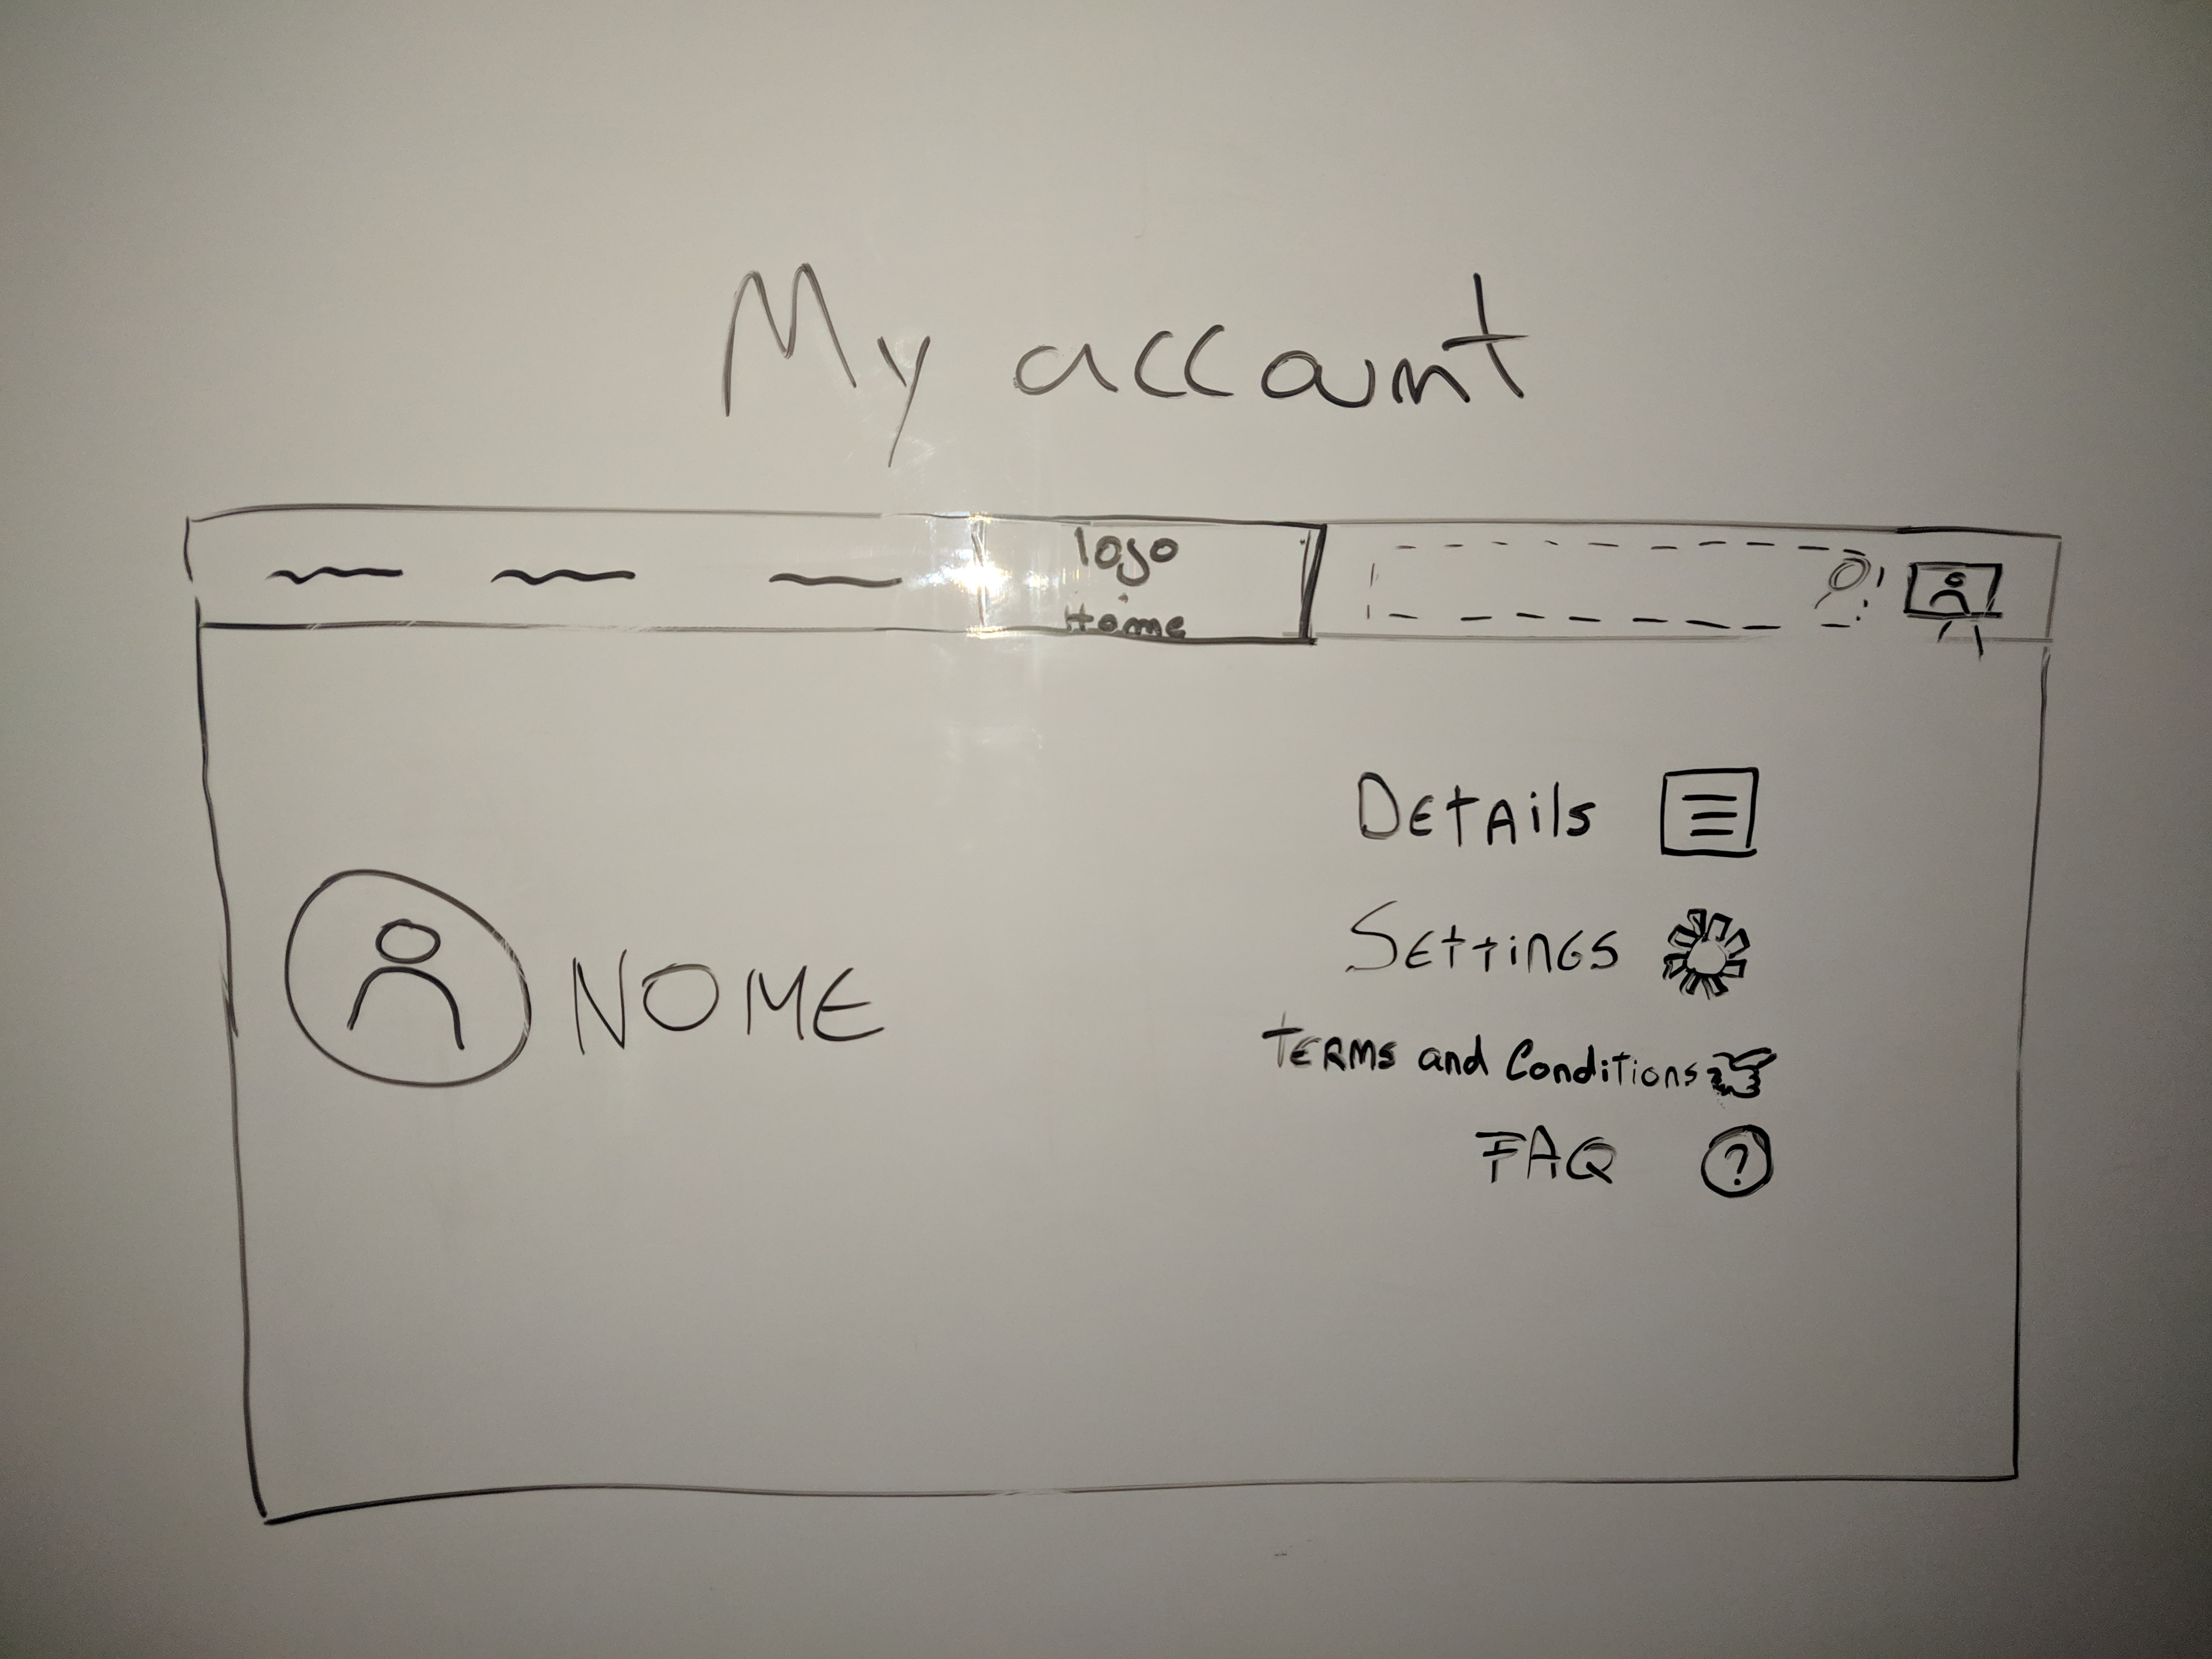 My account
logo
Home
Details
Settings
NOME
Terms and Conditions
FAQ
?